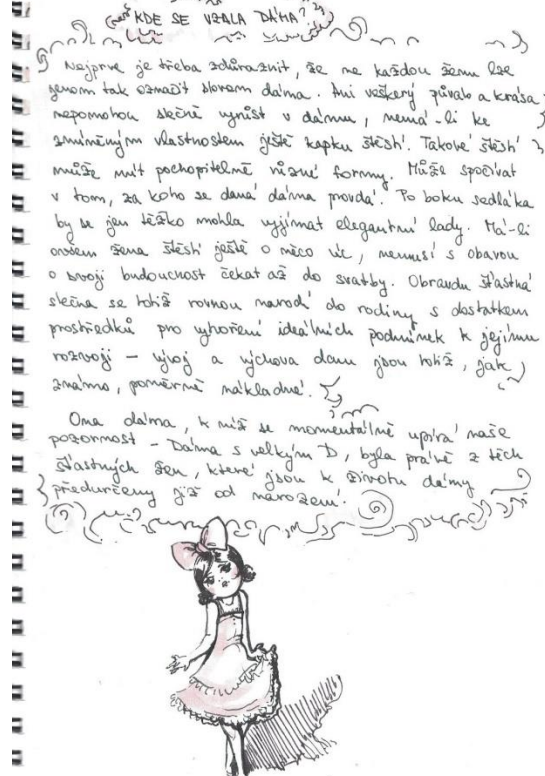 KDE SE VZALA DÁMA?
Nejprve je třeba zdůraznit, že ne každou ženu lze
jenom tak označit slovem dáma. Ani veškerý půvab a krása
nepomohou slečně vyrůst v dámu, nemá-li ke
zmíněným vlastnostem ještě kapku štěstí. Takové štěstí
může mít pochopitelně různé formy. Může spočívat
v tom, za koho se daná dáma provdá. Po boku sedláka
by se jen těžko mohla vyjímat elegantní lady. Má-li
ovšem žena štěstí ještě o něco víc, nemusí s obavou
o svoji budoucnost čekat až do svatby. Opravdu šťastná
slečna se totiž rovnou narodí do rodiny s dostatkem
prostředků pro vytvoření ideálních podmínek k jejímu
rozvoji – vývoj a výchova dam jsou totiž, jak
známo, poměrně nákladné.
Ona dáma, k níž se momentálně upírá naše
pozornost – Dáma s velkým D, byla právě z těch
šťastných žen, které jsou k životu dámy
předurčeny již od narození.